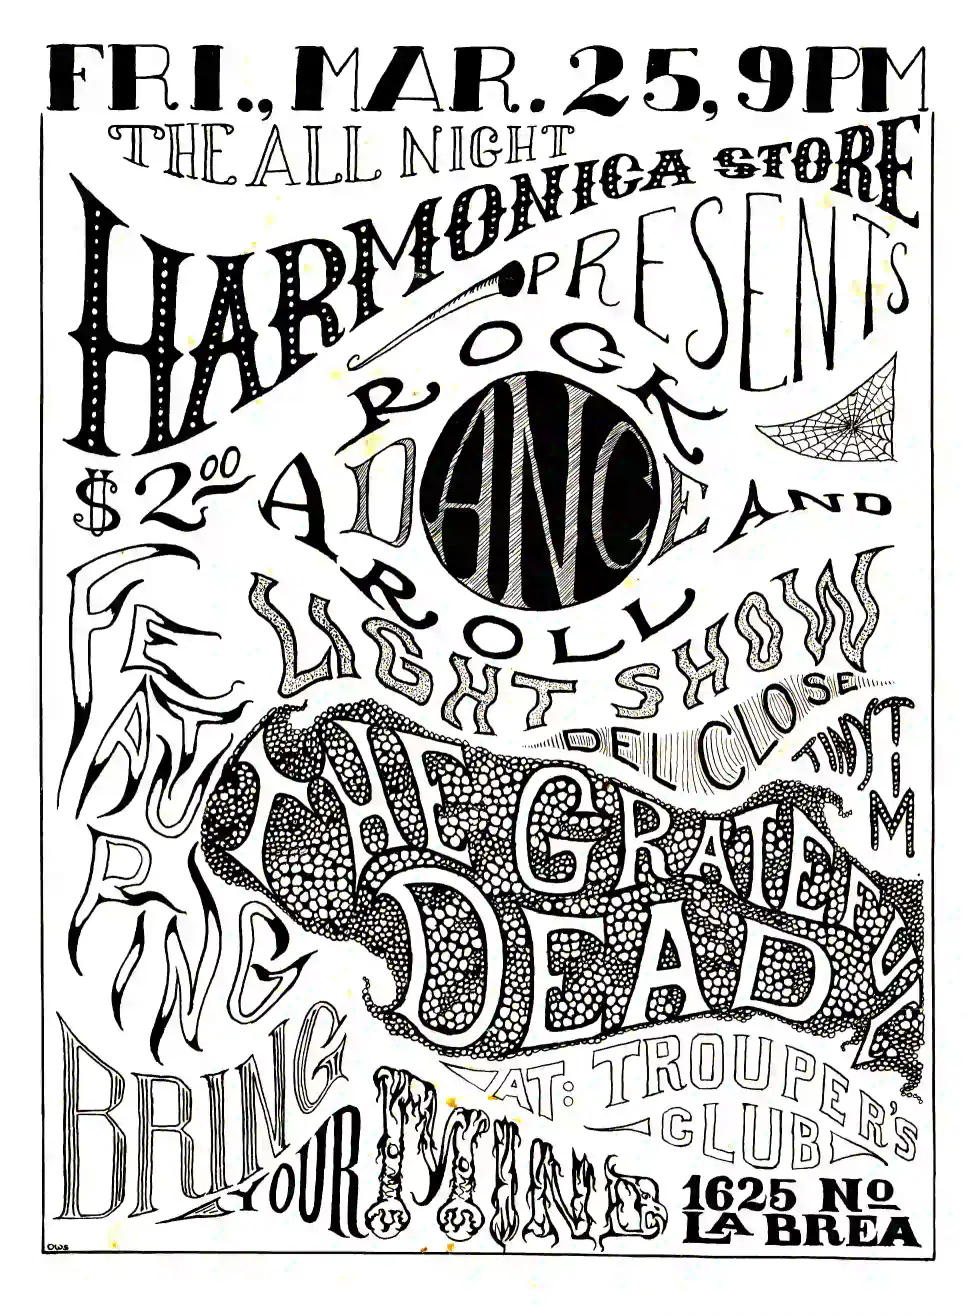 FRI., MAR. 25, 9PM
THE ALL NIGHT
HARMONICA STORE
PRESENTS
$2.00
A ROCK AND ROLL
DANCE
LIGHT SHOW
DEL CLOSE
TINY TIM
FEATURING
THE GRATEFUL
DEAD
AT: TROUPER'S
CLUB
BRING
YOUR MIND
1625 No
LA BREA
OWS